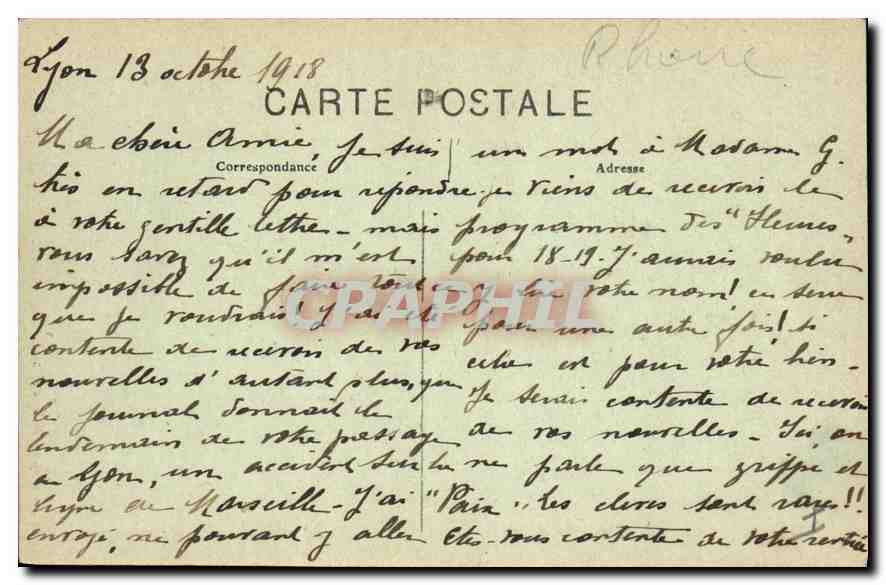 Rhône
Lyon 13 octobre 1918
CARTE POSTALE
Correspondance
Adresse
Ma chère Amie, je suis
très en retard pour répondre
à votre gentille lettre - mais
vous savez qu'il m'est
impossible de faire tout ce
que je voudrais! J'ai été
contente de recevoir de vos
nouvelles d'autant plus, que
le journal donnait le
lendemain de votre passage
à Lyon, un accident sur la
ligne de Marseille - J'ai
envoyé, ne pouvant y aller
un mot à Madame G.
je viens de recevoir le
programme des "Heures"
pour 18-19. J'aurais voulu
y lire votre nom! ce sera
pour une autre fois! si
cela est pour votre bien -
Je serais contente de recevoir
de vos nouvelles - Ici, on
ne parle que grippe et
"Paix". Les élèves sont rares!!
Etes-vous contente de votre rentrée
I
CPARHIL